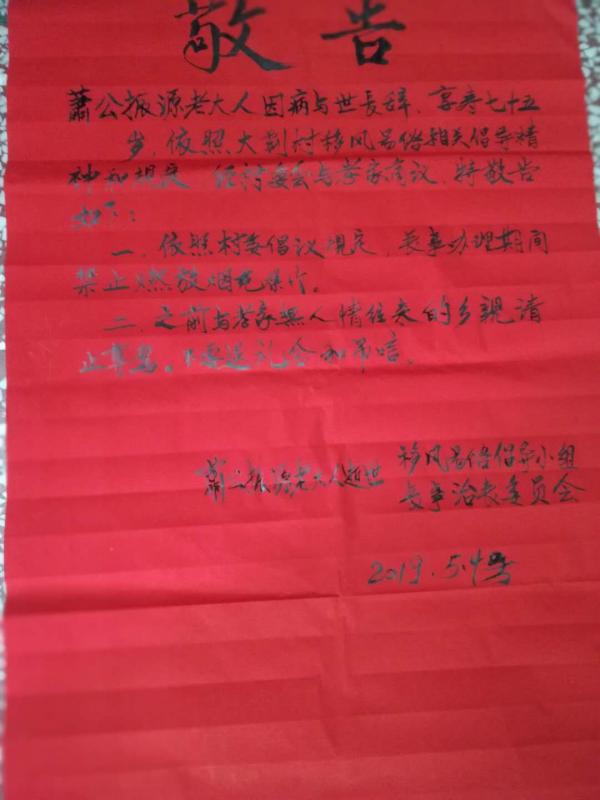 敬告
蕭公振源老大人因病与世长辞，享寿七十五
岁，依照大荆村移风易俗相关倡导精
神和规定，经村委会与孝家商议，特敬告
如下：
一、依照村委倡议规定，丧事办理期间
禁止燃放烟花爆竹。
二、之前与孝家無人情往来的乡親请
止尊驾。不要送礼金和吊唁。
蕭公振源老大人逝世
移风易俗倡导小组
丧事治丧委员会
2019.5.4号